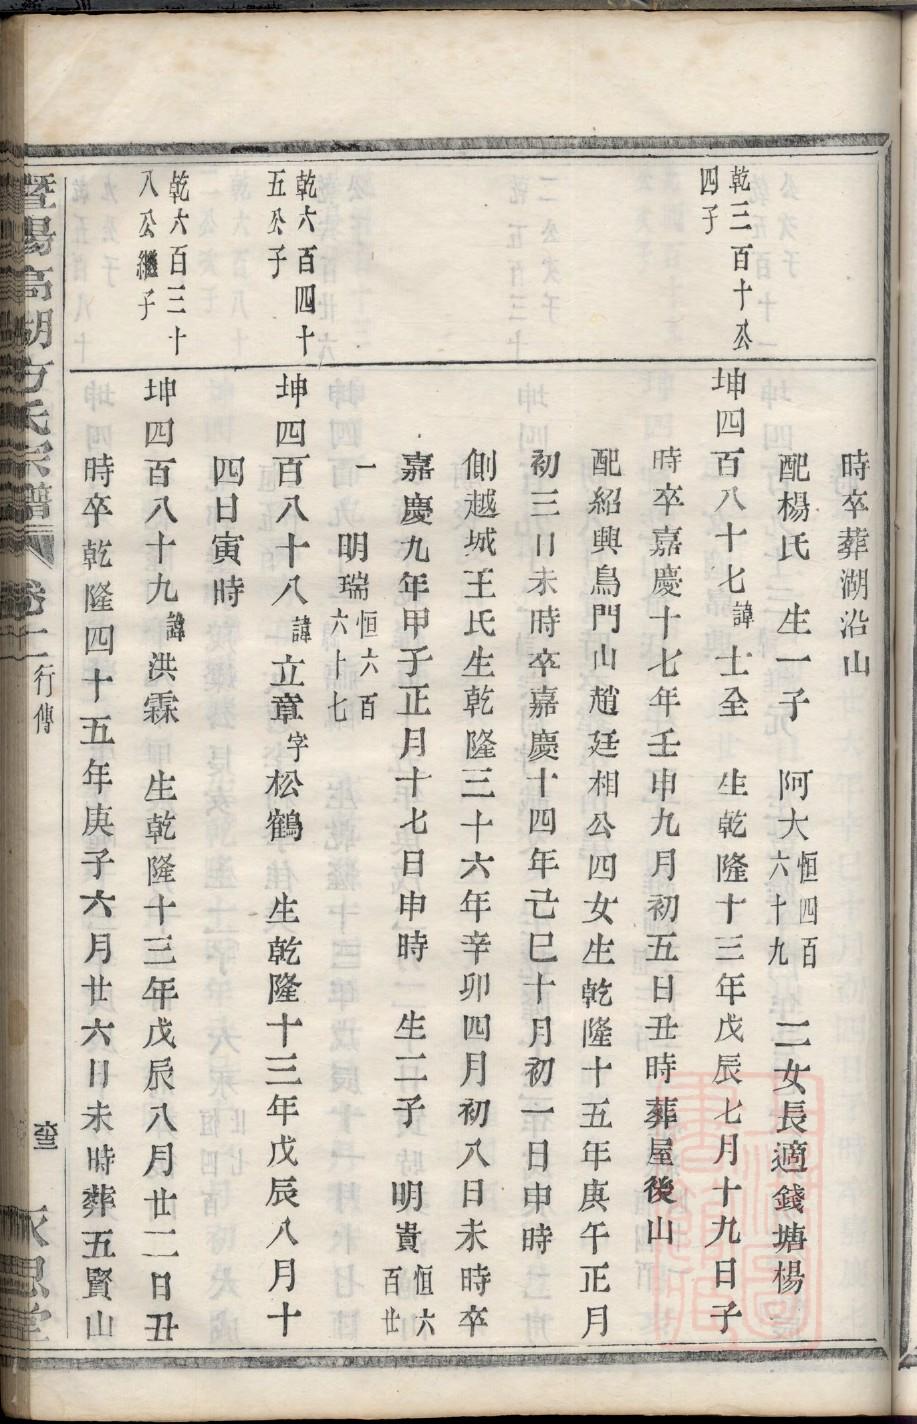 時卒葬湖沿山
配楊氏　生一子　阿大恒四百六十九　二女長適錢塘楊
乾三百十公四子
坤四百八十七諱士全　生乾隆十三年戊辰七月十九日子
時卒嘉慶十七年壬申九月初五日丑時葬屋後山
配紹興鳥門山趙廷相公四女生乾隆十五年庚午正月
初三日未時卒嘉慶十四年己巳十月初一日申時
側越城王氏生乾隆三十六年辛卯四月初八日未時卒
嘉慶九年甲子正月十七日申時　生二子　明貴恒六百廿
一　明瑞恒六百六十七
乾六百四十五公子
坤四百八十八諱立章字松鶴　生乾隆十三年戊辰八月十
四日寅時
乾六百三十八公繼子
坤四百八十九諱洪霖　生乾隆十三年戊辰八月廿二日丑
時卒乾隆四十五年庚子六月廿六日未時葬五賢山
暨陽高湖方氏宗譜　卷十二　行傳　永思堂